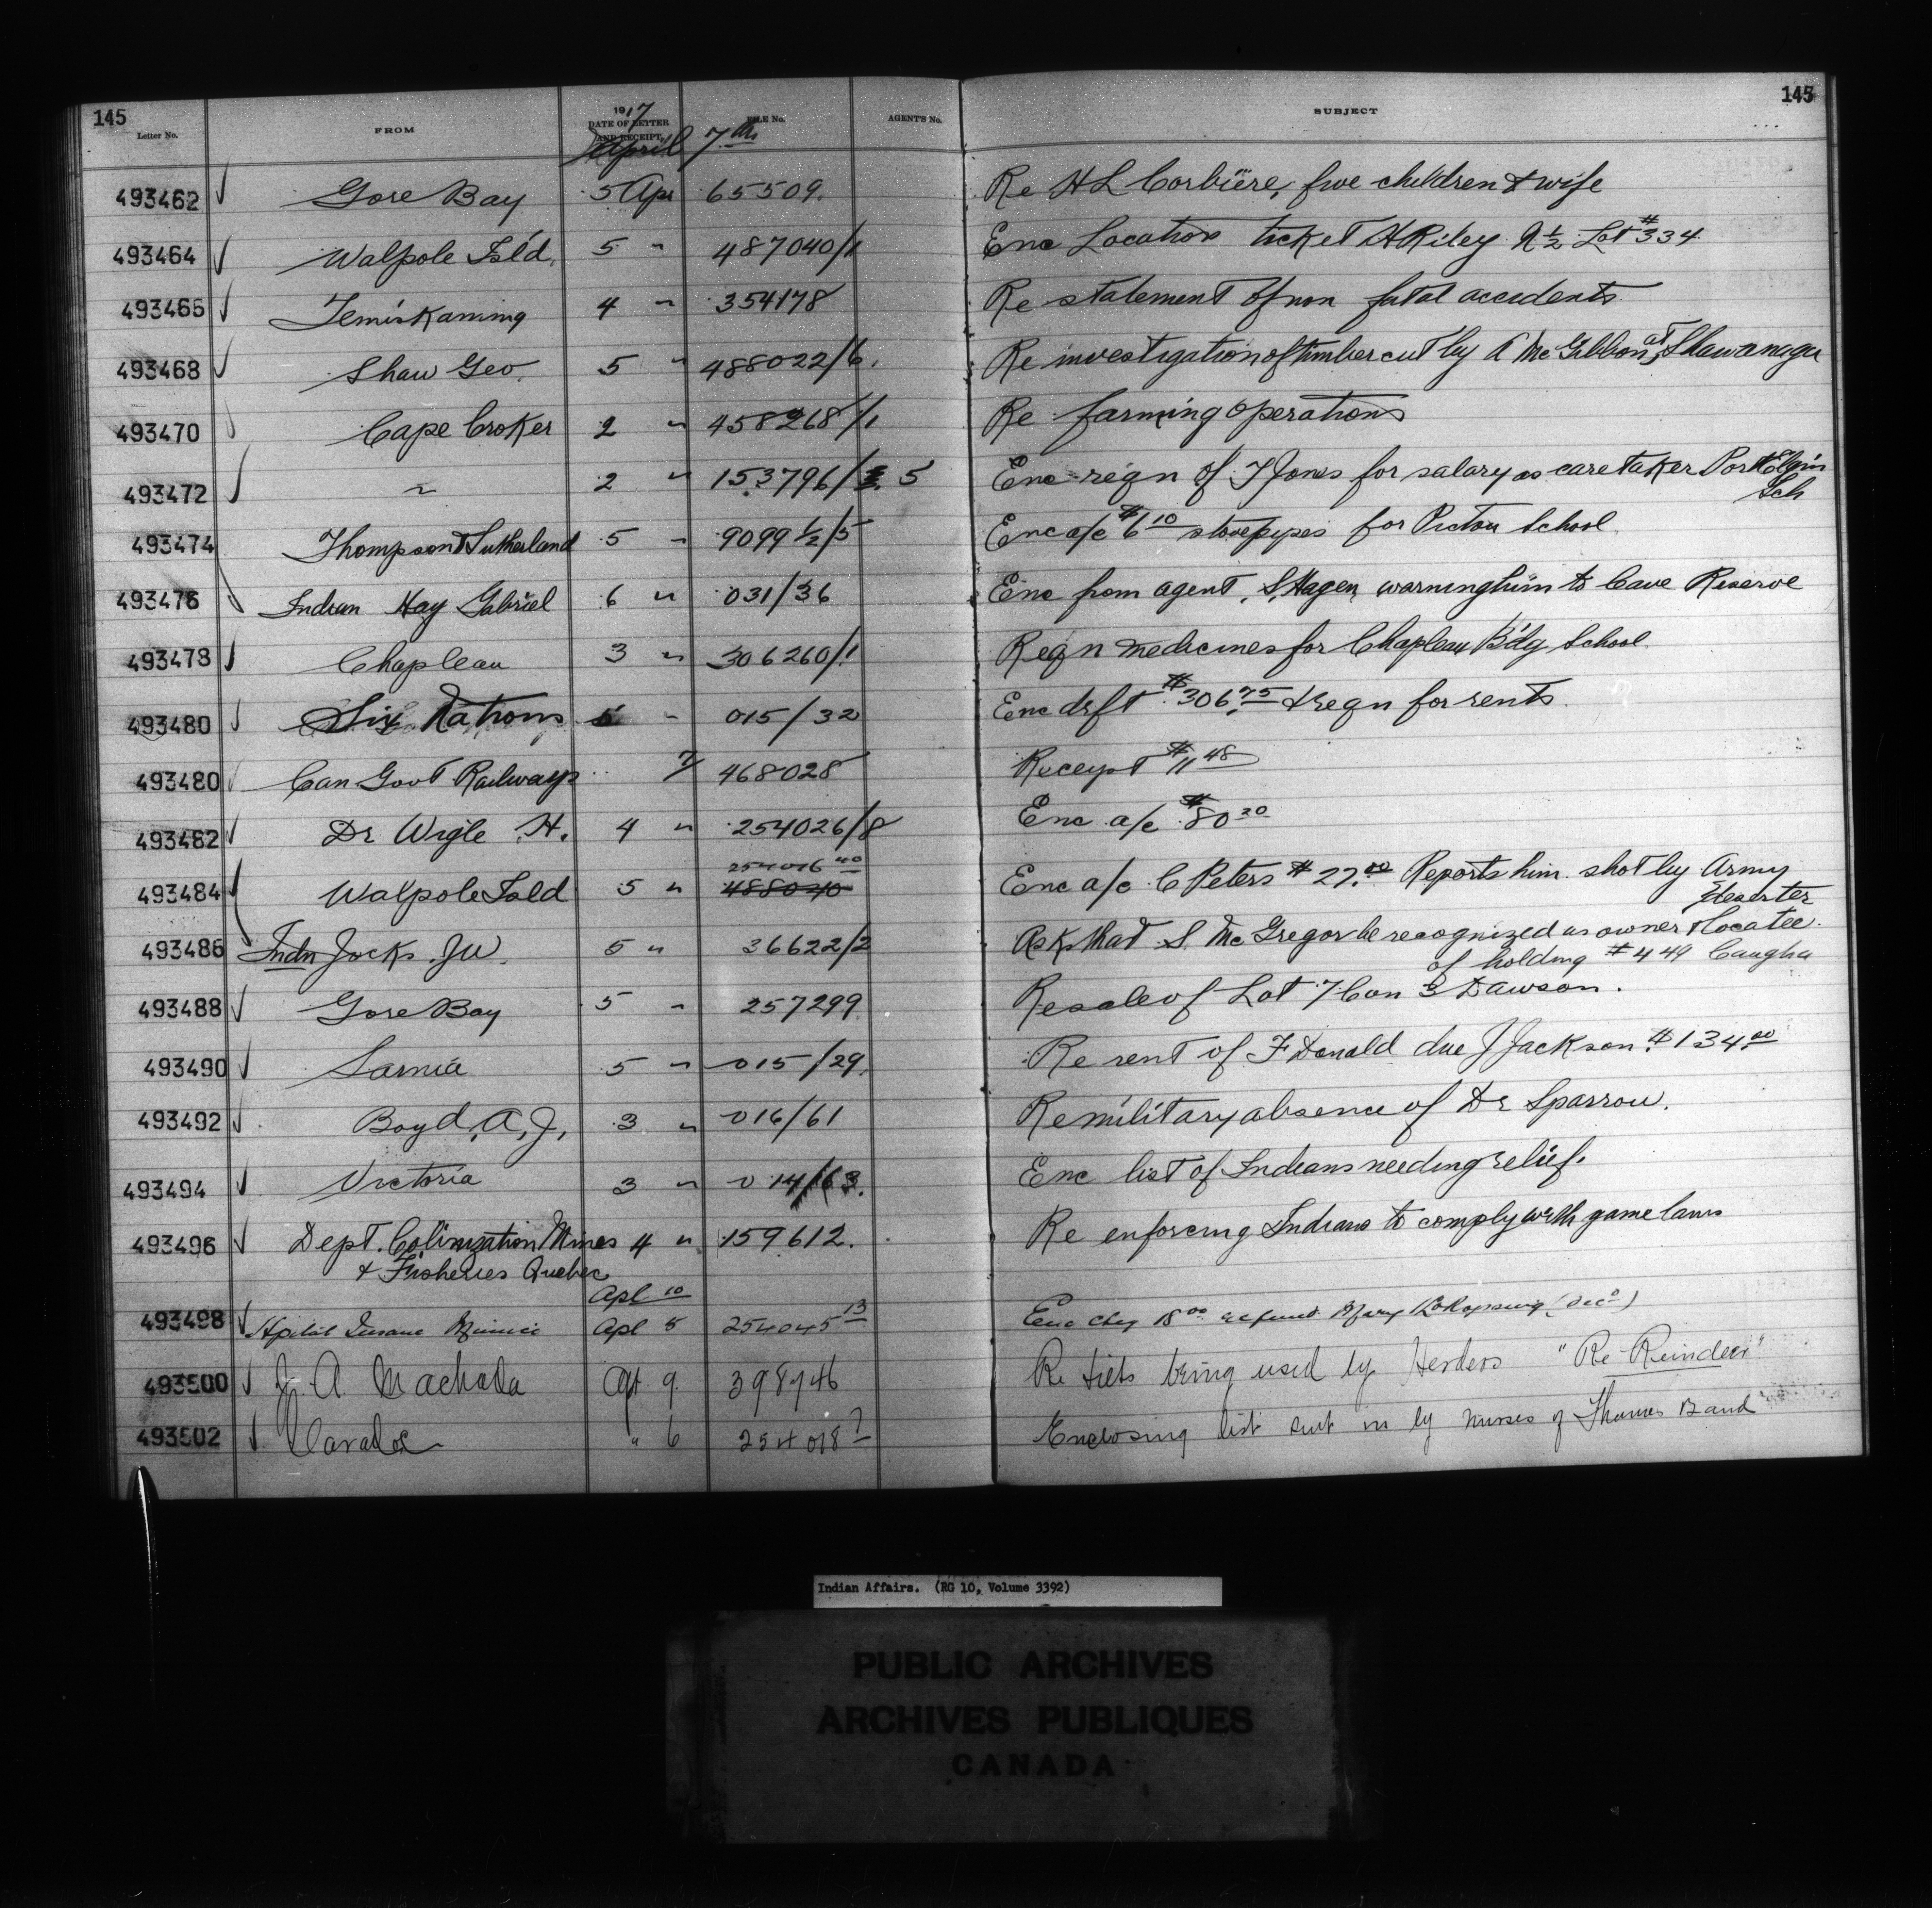 145
145
Letter No. FROM 1917 DATE OF LETTER AND RECEIPT. FILE No. AGENT'S No. SUBJECT
April 7th
493462 Gore Bay 5 Apr 65509. Re H L Corbiere, five children & wife
493464 Walpole Isl'd. 5 " 487040/1 Enc Location ticket H Riley N ½ Lot #334
493466 Temiskaming 4 " 354178 Re statement of non fatal accidents
493468 Shaw Geo. 5 " 488022/6. Re investigation of timber cut by A McGibbon at Shawanaga
493470 Cape Croker 2 " 458268/1 Re farming operations
493472 " 2 " 153796/ 5 Enc reqn of T Jones for salary as caretaker Port Elgin
Sch
493474 Thompson & Sutherland 5 " 9099½/5 Enc a/c $6 10 stovepipes for Pictou School
493476 Indian Hay Gabriel 6 " 031/36 Enc from agent, S. Hagen warning him to leave Reserve
493478 Chapleau 3 " 306260/1 Reqn medicines for Chapleau B'dg School
493480 Six Nations 5 " 015/32 Enc drft $306.75 & reqn for rents
493480 Can Govt Railways 7 468028 Receipt $11 48
493482 Dr Wigle H. 4 " 254026/8 Enc a/c $80 20
254016 40
493484 Walpole Isld 5 " 488040 Enc a/c C Peters $27.00 Reports him shot by Army
Deserter
493486 Indn Jocks. JW. 5 " 36622/2 Asks that S. McGregor be recognized as owner & locatee
of holding #449 Caugha
493488 Gore Bay 5 " 257299 Re sale of Lot 7 Con 3 Dawson.
493490 Sarnia 5 " 015/29. Re rent of F Donald due J Jackson $134.00
493492 Boyd, A, J, 3 " 016/61 Re military absence of Dr Sparrow.
493494 Victoria 3 " 014/63. Enc list of Indians needing relief.
493496 Dept. Colinization Mines 4 " 159612. Re enforcing Indians to comply with game laws
& Fisheries Quebec
Apl 10
493498 Hpital Insane Mimico Apl 5 254045 13 Enc chq 18 00 refund Mary (Dec'd)
493500 J. A. Machada Apl 9 398746 Re being used by Herders "Re Reindeer"
493502 " 6 254018 Enclosing list sent in by nurses of Thames Band
Indian Affairs. (RG 10, Volume 3392)
PUBLIC ARCHIVES
ARCHIVES PUBLIQUES
CANADA